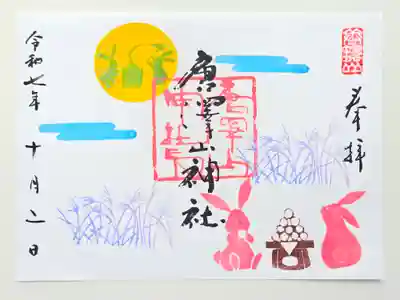 奉拝
唐澤山神社
令和七年十月二日